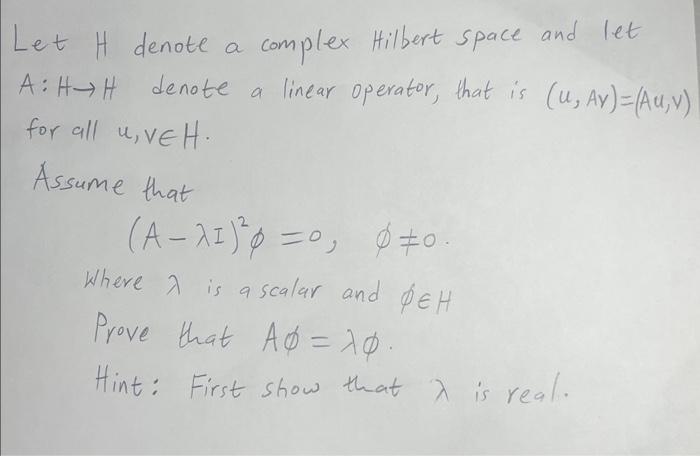 Let H denote a complex Hilbert space and let
A:H→H denote a linear operator, that is (u, Av)=(Au,v)
for all u,v∈H.
Assume that
(A-λI)²φ=0, φ≠0.
Where λ is a scalar and φ∈H
Prove that Aφ=λφ.
Hint: First show that λ is real.